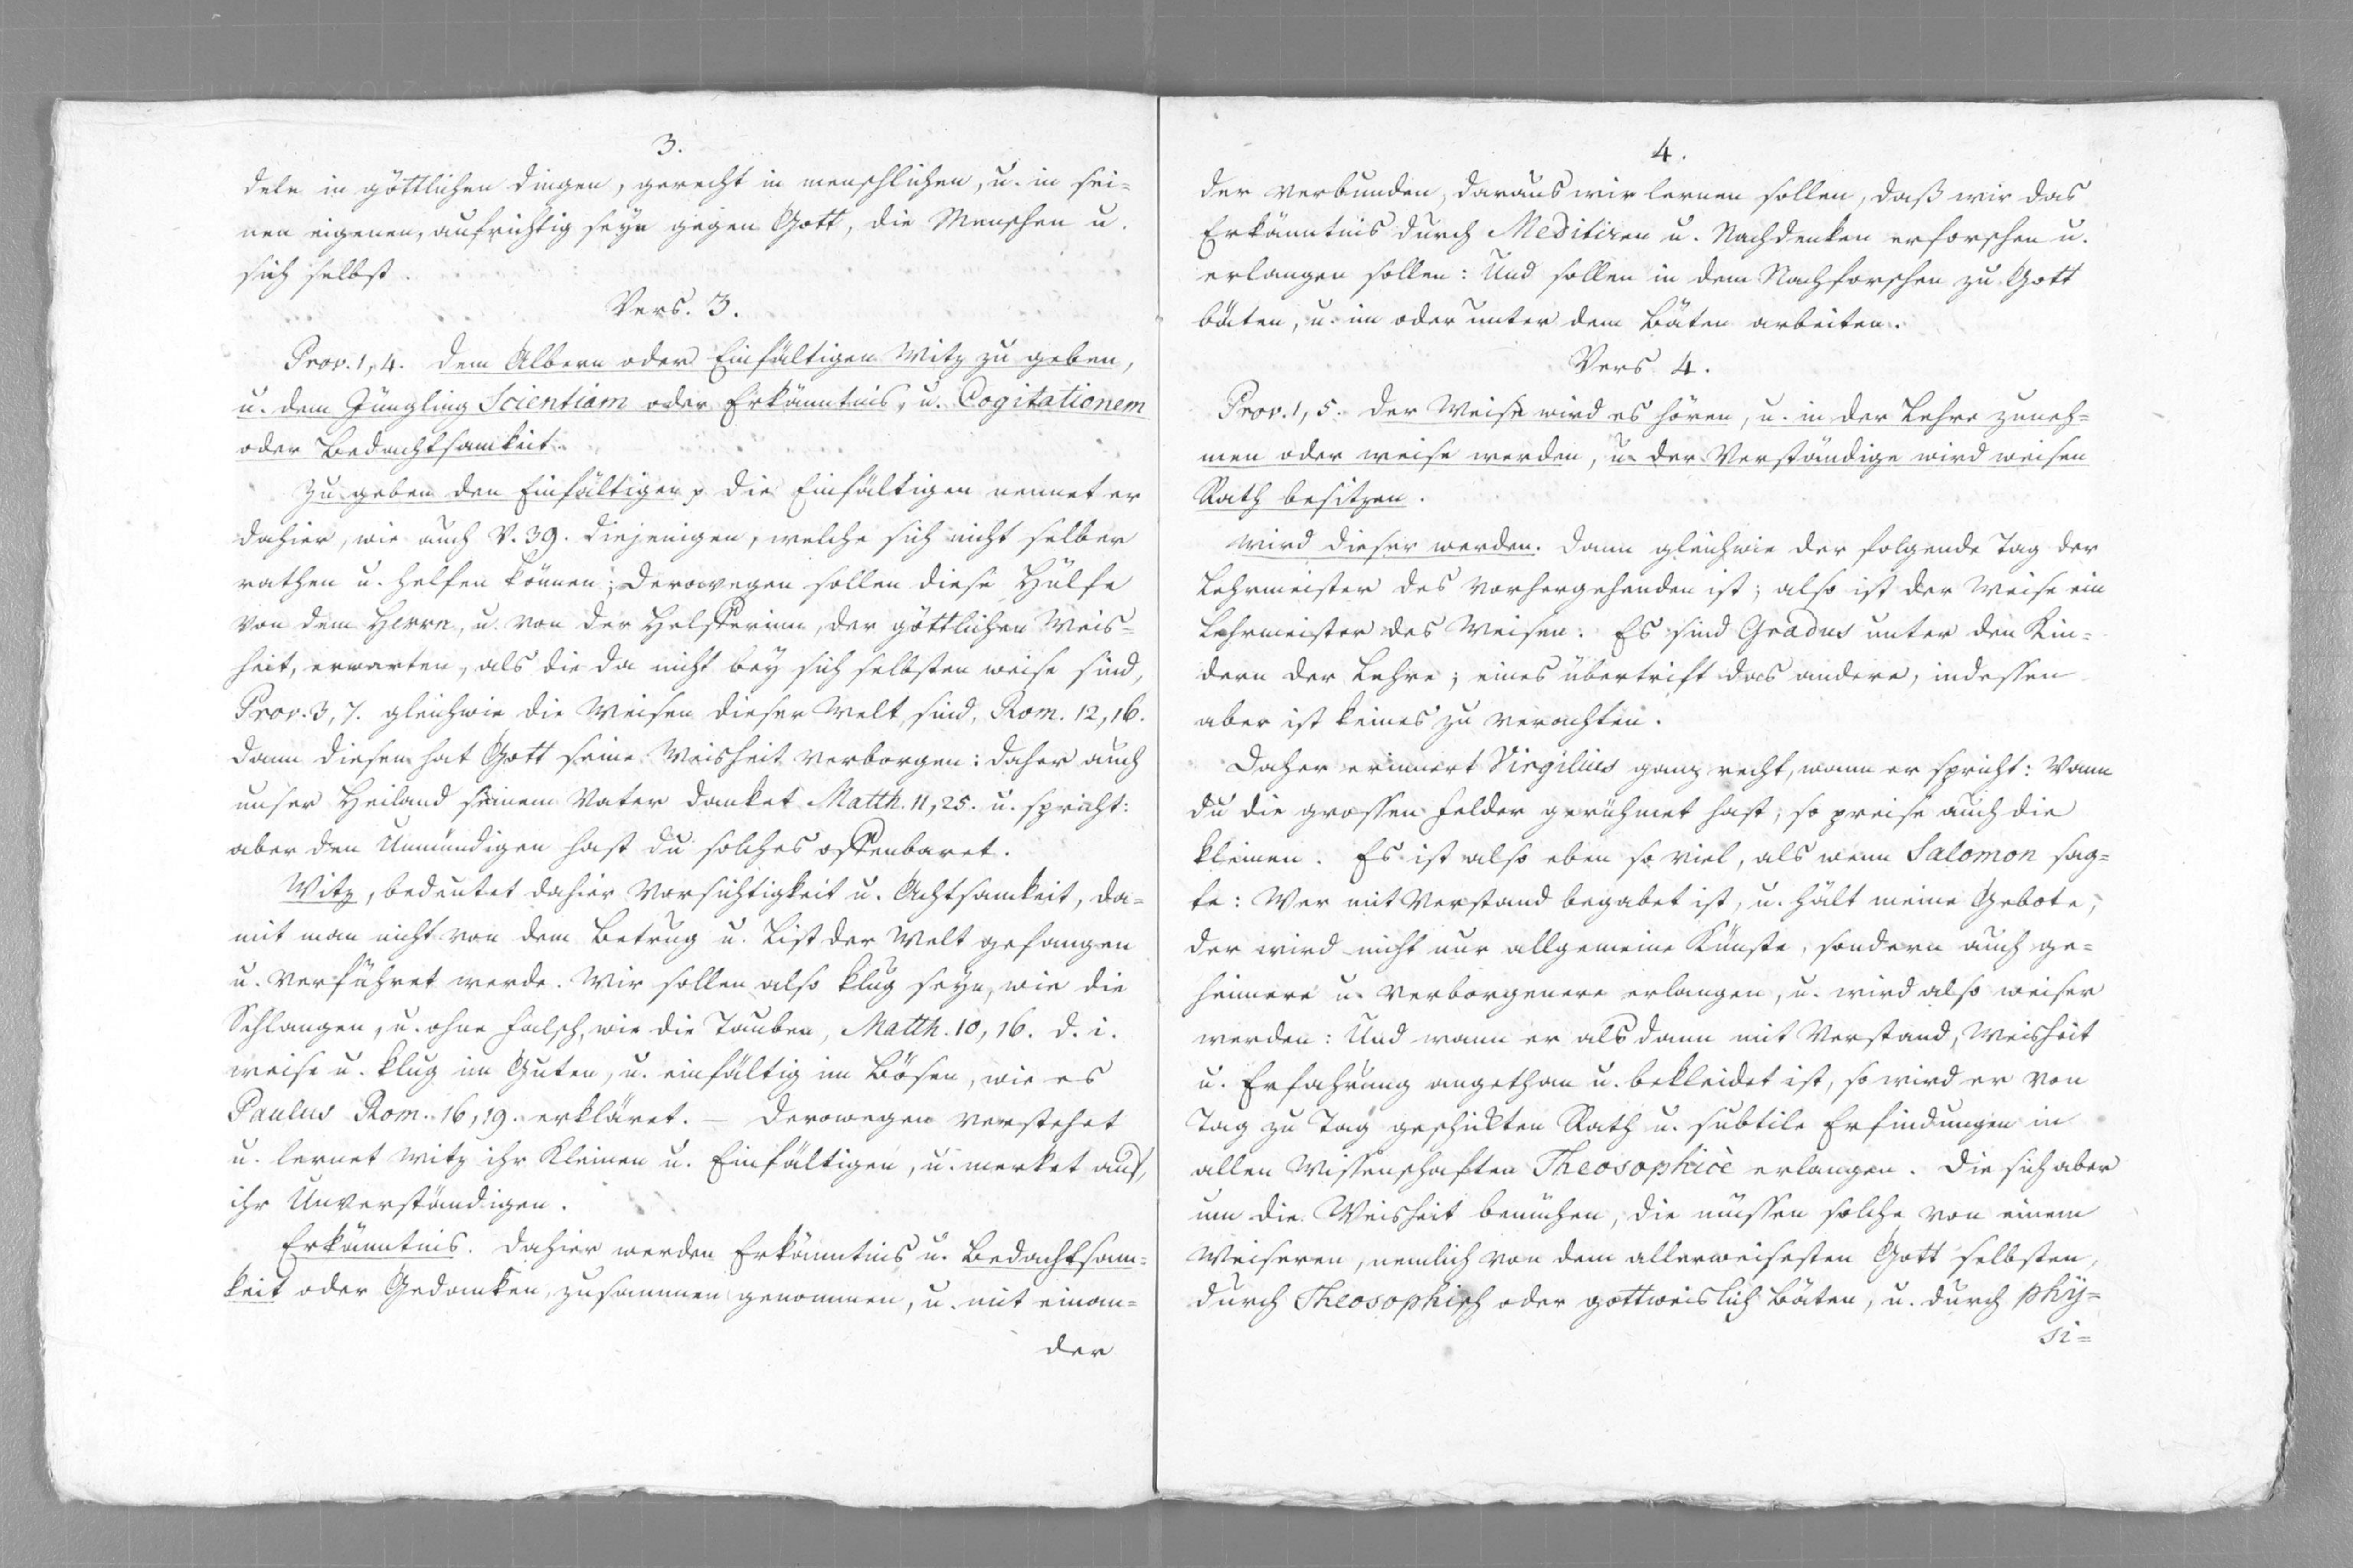 3.
deln in göttlichen Dingen, gerecht in menschlichen, u. in sei=
nen eigenen, aufrichtig seyn gegen Gott, die Menschen u.
sich selbst.
Vers. 3.
Prov. 1, 4. dem Albern oder Einfältigen Witz zu geben,
u. dem Jüngling Scientiam oder Erkänntnis, u. Cogitationem
oder Bedachtsamkeit.
Zu geben den Einfältigen die Einfältigen nennet er
dahier, wie auch V. 39. diejenigen, welche sich nicht selber
rathen u. helfen können; derowegen sollen diese Hülfe
von dem Herrn, u. von der Helfferinn, der göttlichen Weis=
heit, erwarten, als die da nicht bey sich selbsten weise sind,
Prov. 3, 7. gleichwie die Weisen dieser Welt sind, Rom. 12, 16.
dann diesen hat Gott seine Weisheit verborgen: daher auch
unser Heiland seinem Vater danket Matth. 11, 25. u. spricht:
aber den Unmündigen hast du solches offenbaret.
Witz, bedeutet dahier Vorsichtigkeit u. Achtsamkeit, da=
mit man nicht von dem Betrug u. List der Welt gefangen
u. verführet werde. Wir sollen also klug seyn, wie die
Schlangen, u. ohne falsch, wie die Tauben, Matth. 10, 16. d. i.
weise u. klug im Guten, u. einfältig im Bösen, wie es
Paulus Rom. 16, 19. erkläret. – Derowegen verstehet
u. lernet Witz ihr Kleinen u. Einfältigen, u. merket auf,
ihr Unverständigen.
Erkänntnis. Dahier werden Erkänntnis u. Bedachtsam=
keit oder Gedanken, zusammen genommen, u. mit einan=
der
4.
der verbunden, daraus wir lernen sollen, daß wir das
Erkänntnis durch Meditiren u. Nachdenken erforschen u.
erlangen sollen: Und sollen in dem Nachforschen zu Gott
bäten, u. im oder unter dem Bäten arbeiten.
Vers 4.
Prov. 1, 5. Der Weise wird es hören, u. in der Lehre zuneh=
men oder weise werden, u. der Verständige wird weisen
Rath besitzen.
Wird dieser werden. Dann gleichwie der folgende Tag der
Lehrmeister des vorhergehenden ist; also ist der Weise ein
Lehrmeister des Weisen. Es sind Gradus unter den Kin=
dern der Lehre; eines übertrift das andere, indessen
aber ist keines zu verachten.
Daher erinnert Virgilius ganz recht, wann er spricht: Wann
du die grossen Felder gerühmet hast, so preise auch die
kleinen. Es ist also eben so viel, als wenn Salomon sag=
te: Wer mit Verstand begabet ist, u. hält meine Gebote,
der wird nicht nur allgemeine Künste, sondern auch ge=
heimere u. verborgenere erlangen, u. wird also weiser
werden: Und wann er als dann mit Verstand, Weisheit
u. Erfahrung angethan u. bekleidet ist, so wird er von
Tag zu Tag geschikten Rath u. subtile Erfindungen in
allen Wissenschaften Theosophicè erlangen. Die sich aber
um die Weisheit bemühen, die müssen solche von einem
Weiseren, nemlich von dem allerweisesten Gott selbsten,
durch Theosophisch oder gottweislich Bäten, u. durch Phÿ=
si=